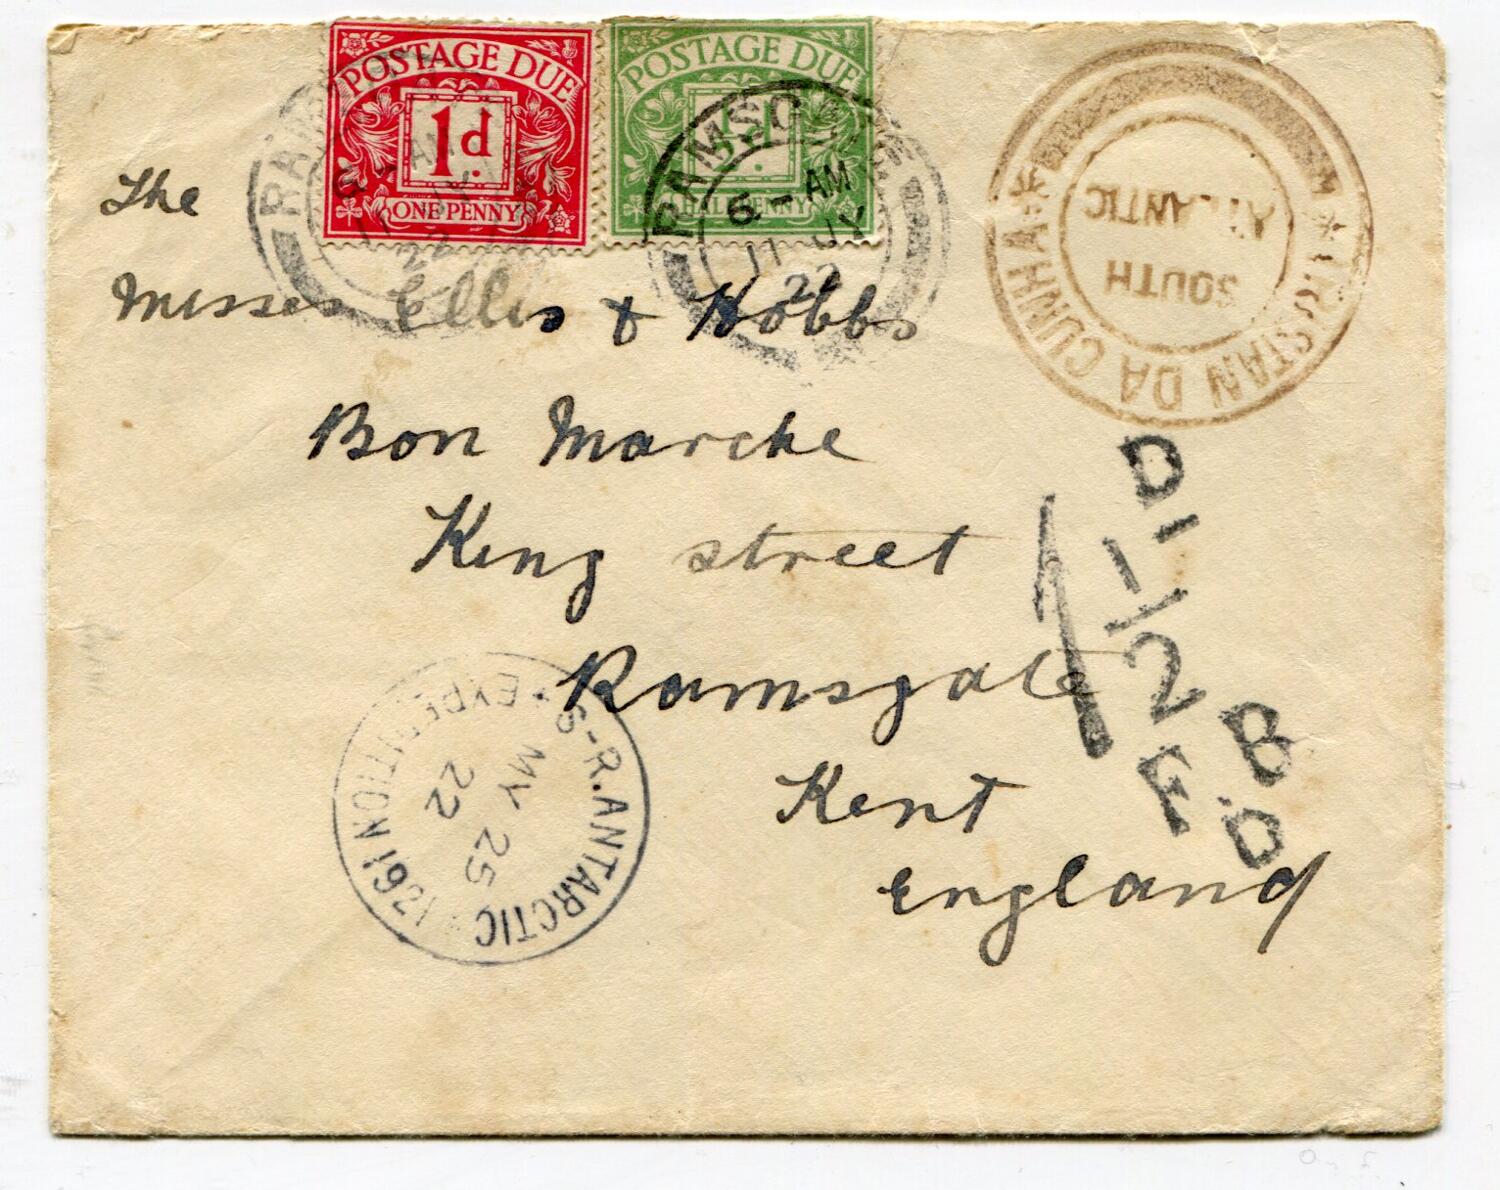 POSTAGE DUE
1d
ONE PENNY
POSTAGE DUE
½d.
HALF PENNY
AM
11 JY
22
RAMSG
6 - AM
11 JY
22
★ TRISTAN DA CUNHA ★
SOUTH
ATLANTIC
The
Misses Ellis & Hobbs
Bon Marche
King street
Ramsgate
Kent
England
1
D
1/2
F.B
D
S-R. ANTARCTIC EXPEDITION 1921
MY 25
22